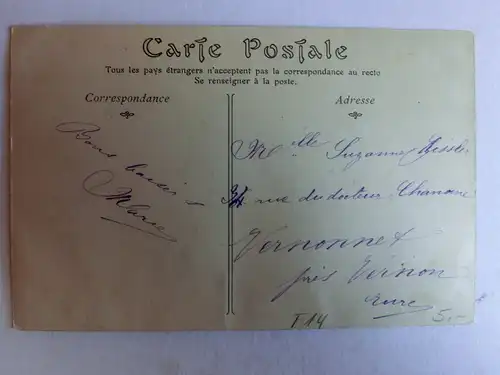 Carte Postale
Tous les pays étrangers n'acceptent pas la correspondance au recto
Se renseigner à la poste.
Correspondance
Adresse
Bons baisers
Marie
Melle Suzanne
rue du docteur Chanoine
Vernonnet
près Vernon
Eure
T 14
5.-